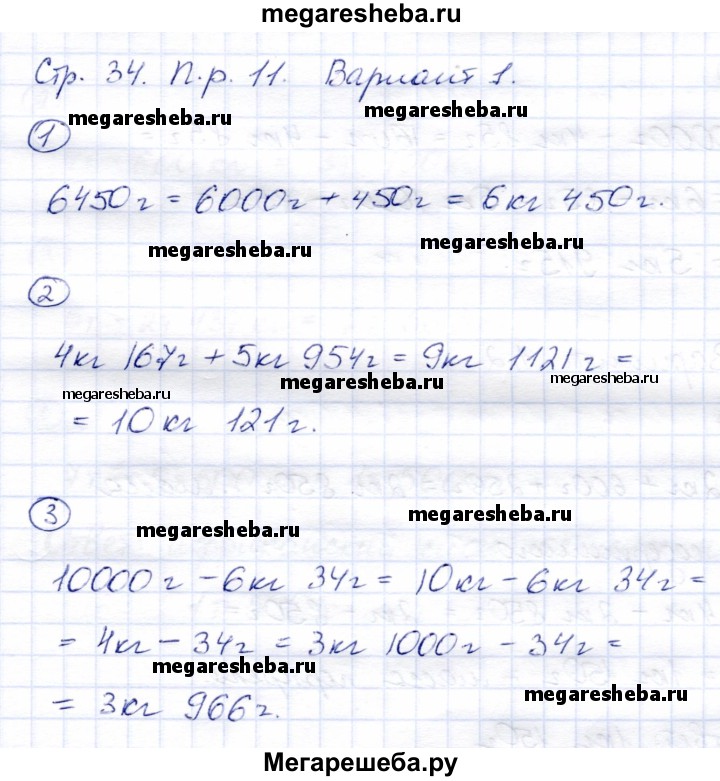 megaresheba.ru
Стр. 34. П.р. 11. Вариант 1.
megaresheba.ru megaresheba.ru
1
6450г = 6000г + 450г = 6кг 450г.
megaresheba.ru megaresheba.ru
2
4кг 167г + 5кг 954г = 9кг 1121г =
megaresheba.ru megaresheba.ru megaresheba.ru
= 10кг 121г.
3
megaresheba.ru megaresheba.ru
10000г - 6кг 34г = 10кг - 6кг 34г =
= 4кг - 34г = 3кг 1000г - 34г =
megaresheba.ru megaresheba.ru
= 3кг 966г.
Мегарешеба.ру